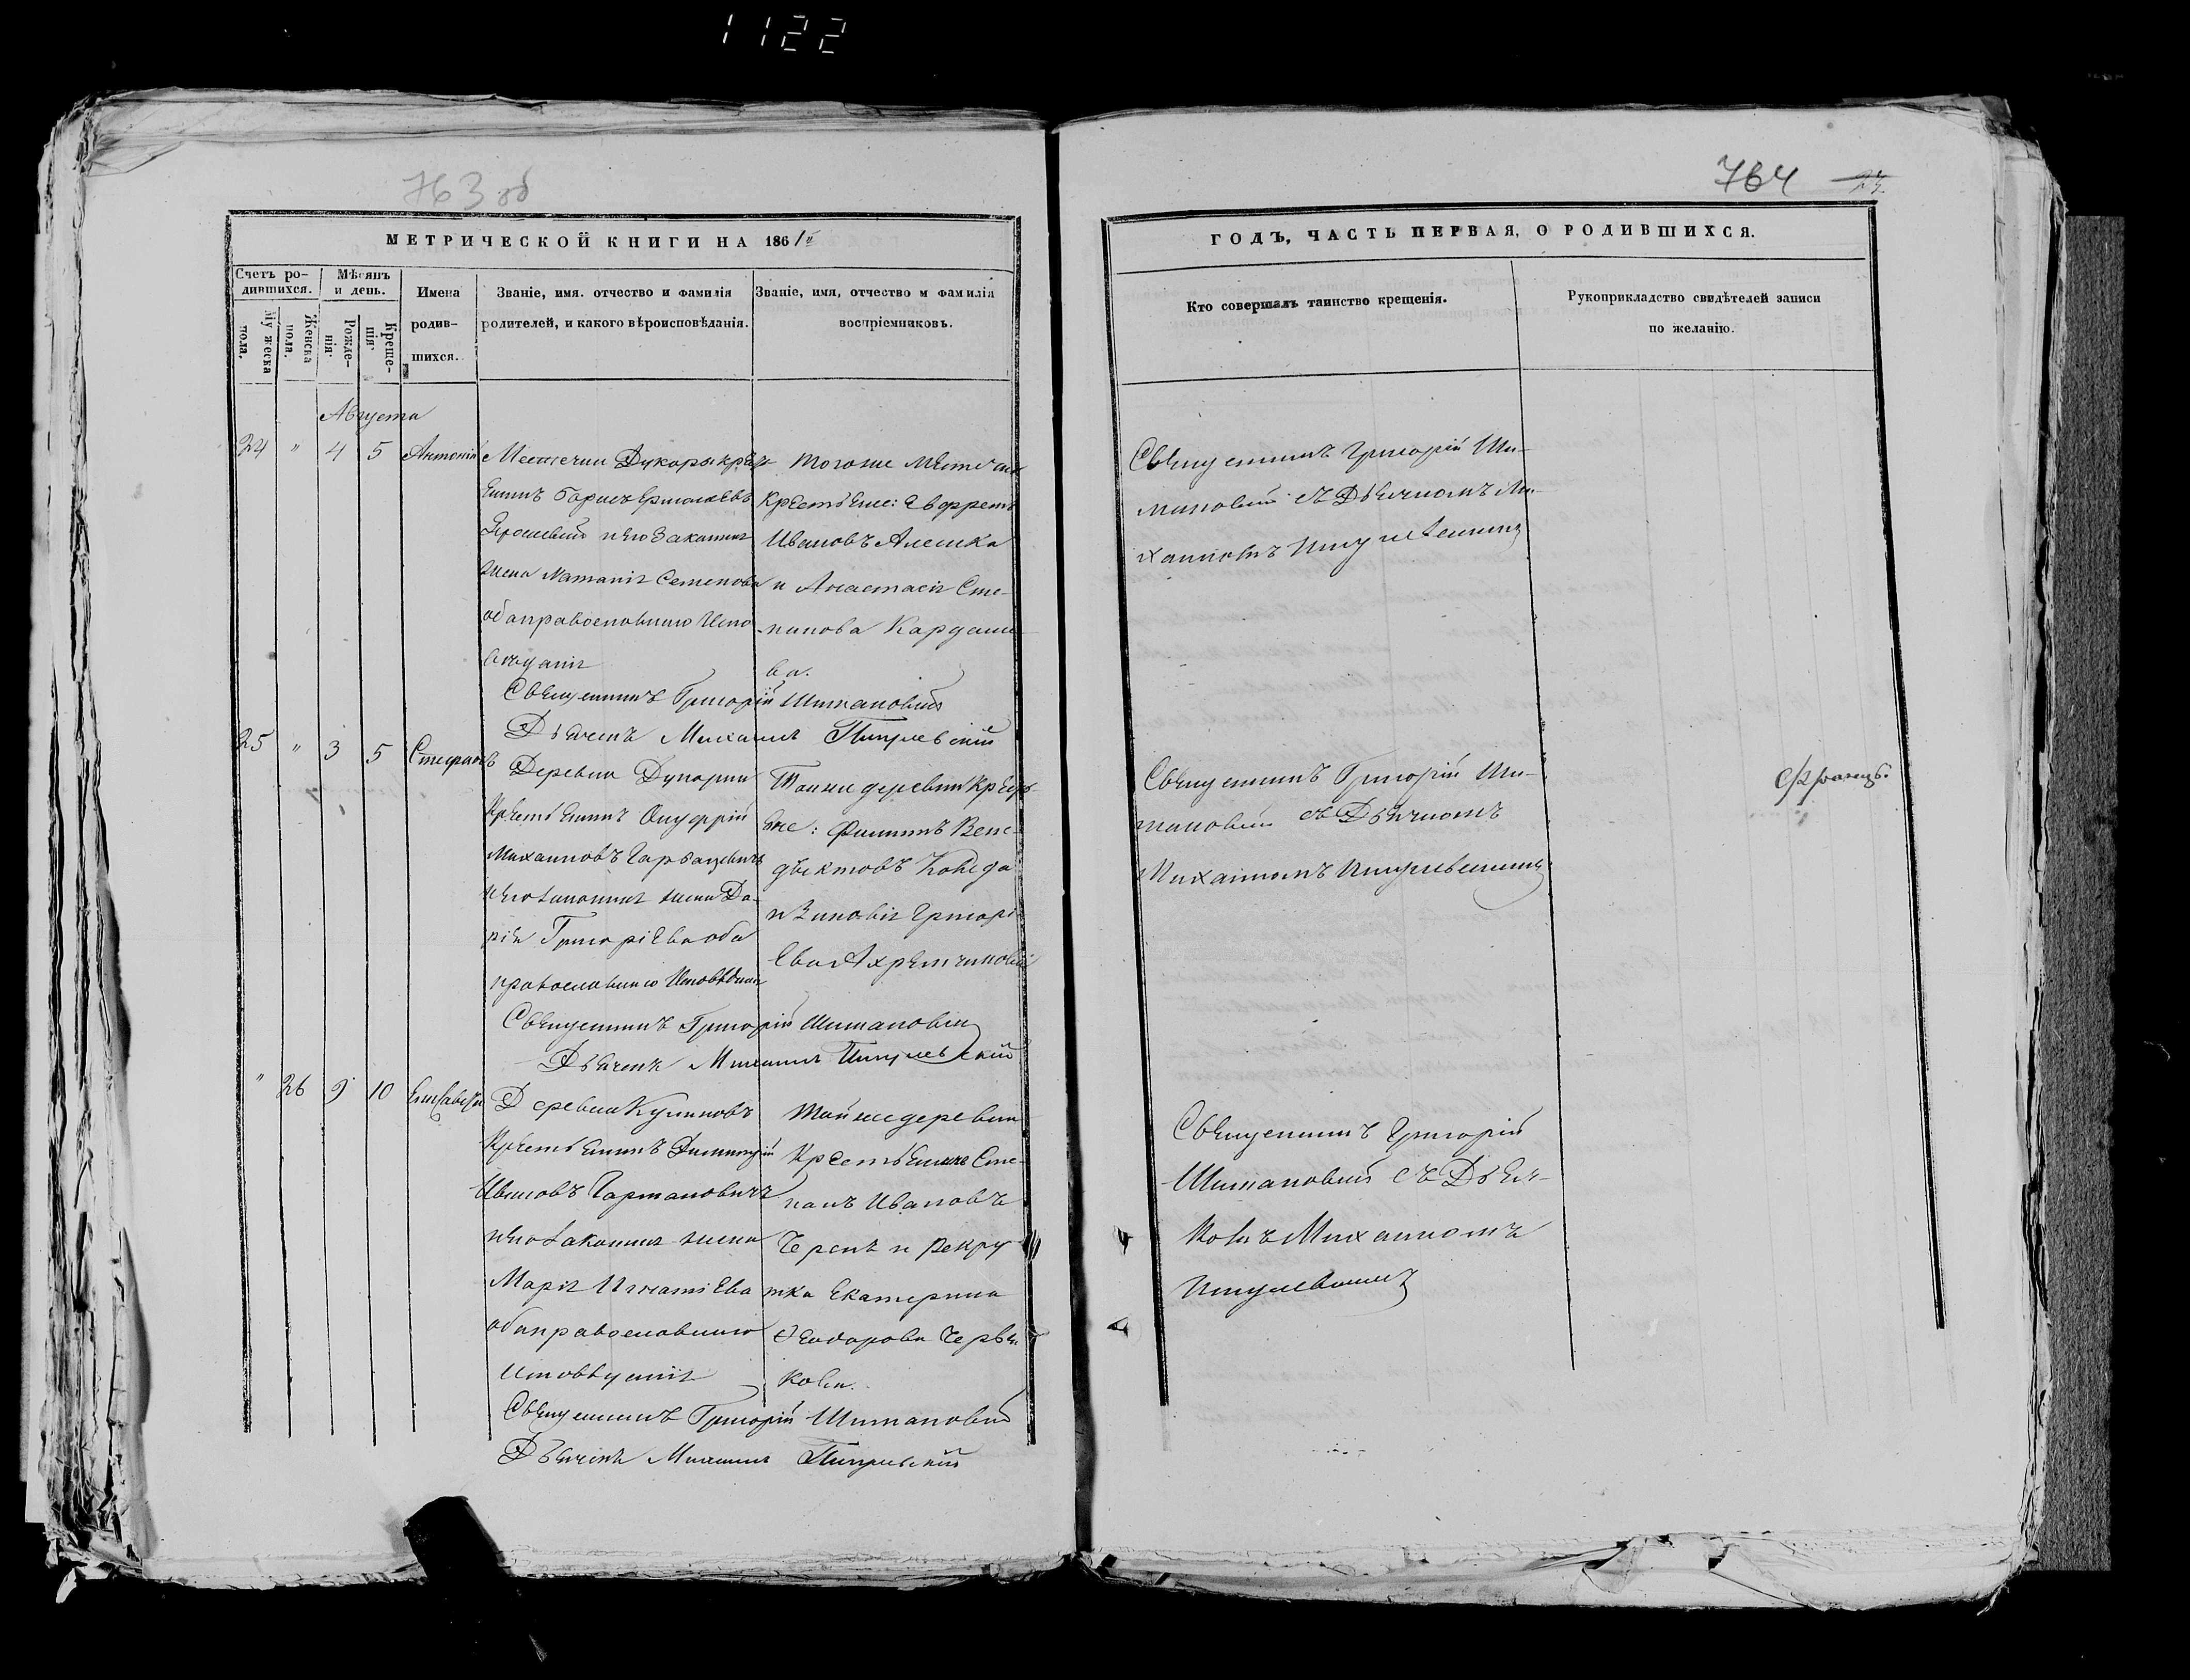 1122
763 об
МЕТРИЧЕСКОЙ КНИГИ НА 1861й
Счетъ ро-
дившихся.
Мѣсяцъ
и день.
Имена
родив-
шихся.
Званіе, имя. отчество и фамилія
родителей, и какого вѣроисповѣданія.
Званіе, имя, отчество и фамилія
воспріемниковъ.
Мужеска
пола.
Женска
пола.
Рожде-
нія.
Креще-
нія.
Августа
24 " 4 5 Антоній
Местечка Дукоры кресть
янинъ Борисъ Ермолаевъ
и его законная
жена Наталія Семенова
оба православнаго испо
веданія
Тогоже местечка
крестьяне:
Ивановъ Алешка
и Анастасія Сте-
панова Кардаше
ва.
Священникъ Григорій Шимановій
Дьячекъ Михаилъ Пигулевскій
25 " 3 5 Стефанъ
Деревни
Крестьянинъ Онуфрій
Михаиловъ Гарбацевичъ
и его законная жена Да-
рія Григоріева оба
православнаго исповѣданія
Тойже деревни кресть-
яне: Филипъ Вене-
дыктовъ
и Зиновія Григорі
ева
Священникъ Григорій Шимановій
Дьячекъ Михаилъ Пигулевскій
" 26 9 10 Елисавета
Деревни
Крестьянинъ Димитрій
Ивановъ Гартановичъ
и его законная жена
Марія Игнатіева
оба православнаго
исповѣданія
Тойже деревни
Крестьянинъ Сте-
панъ Ивановъ
и Рекру
тка Екатерина
Ѳеодорова Червя
кова.
Священникъ Григорій Шимановій
Дьячекъ Михаилъ Пигулевскій
764
ГОДЪ, ЧАСТЬ ПЕРВАЯ, О РОДИВШИХСЯ.
Кто совершалъ таинство крещенія.
Рукоприкладство свидѣтелей записи
по желанію.
Священникъ Григорій Ши-
мановій съ Дьячкомъ Ми-
хаиломъ Пигулевскимъ
Священникъ Григорій Ши-
мановій съ Дьячкомъ
Михаиломъ Пигулевскимъ
Священникъ Григорій
Шимановій съ Дьяч-
комъ Михаиломъ
Пигулевскимъ